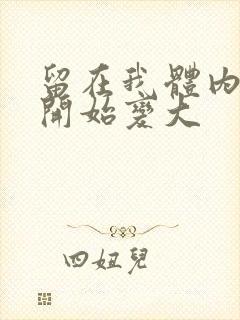 留在我體內
開始變大
四妞兒